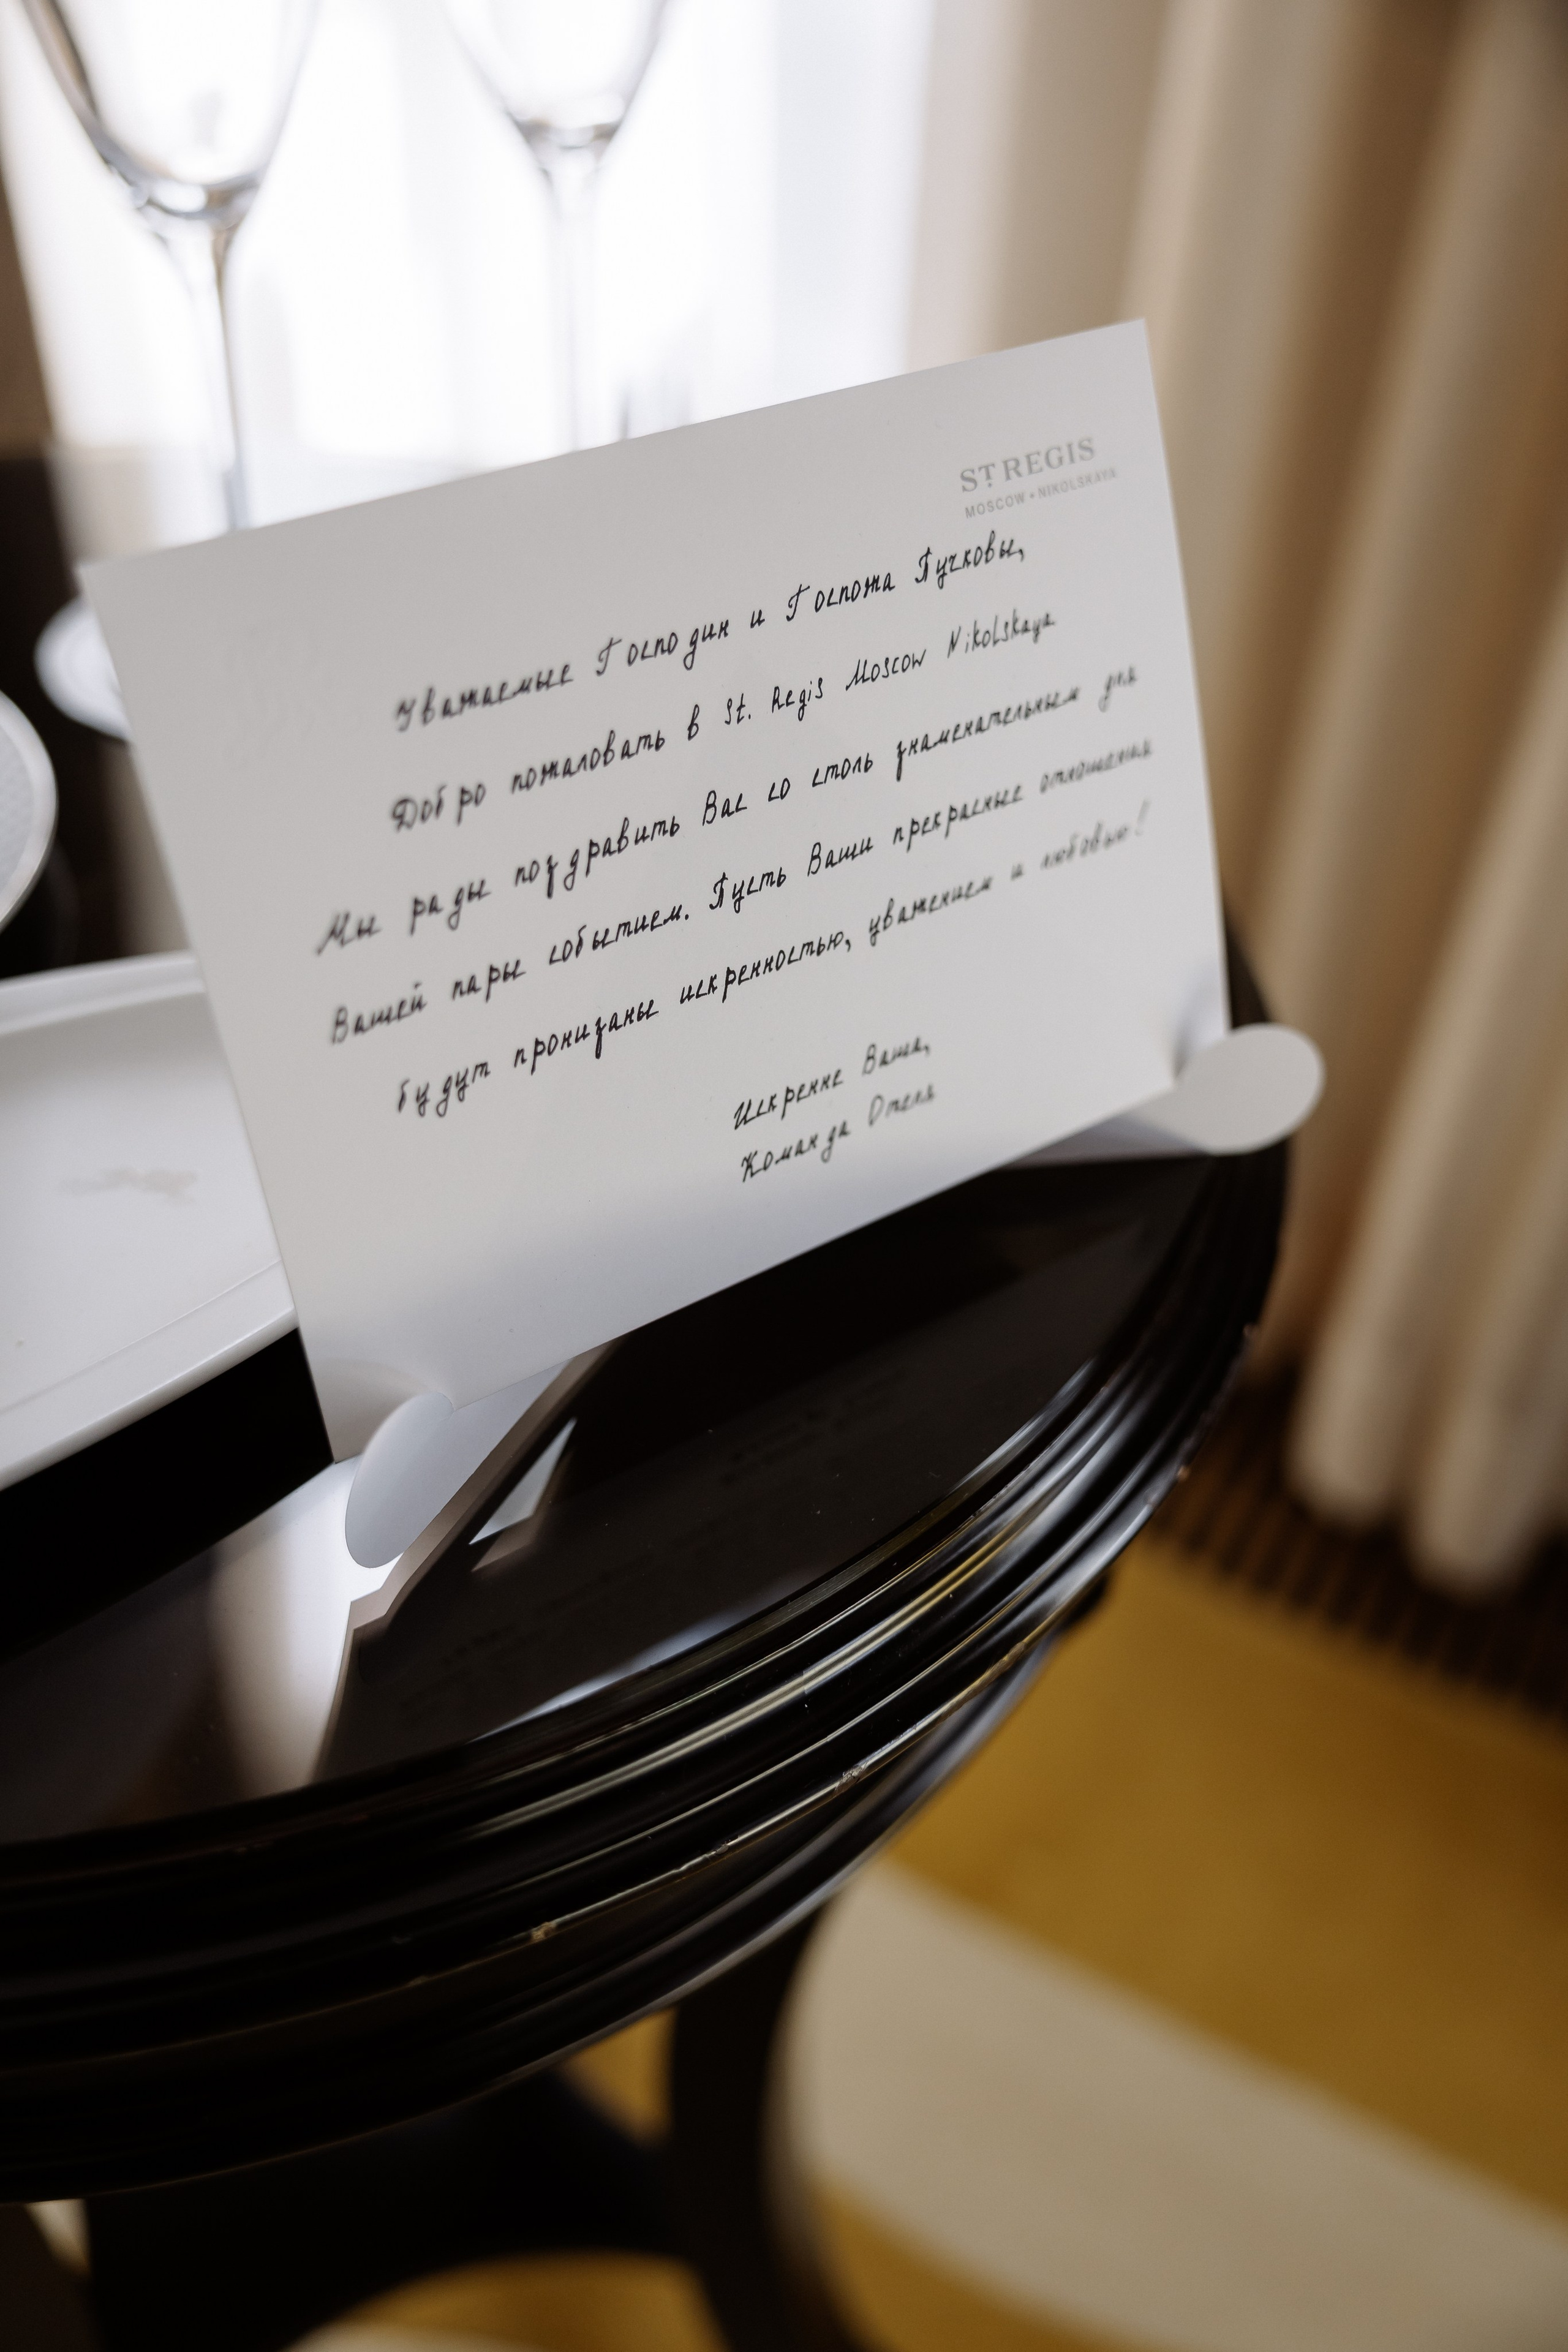 ST. REGIS
MOSCOW • NIKOLSKAYA
Уважаемые Господин и Госпожа Пучковы,
Добро пожаловать в St. Regis Moscow Nikolskaya
Мы рады поздравить Вас со столь знаменательным для
Вашей пары событием. Пусть Ваши прекрасные отношения
будут пронизаны искренностью, уважением и любовью!
Искренне Ваша,
Команда Отеля